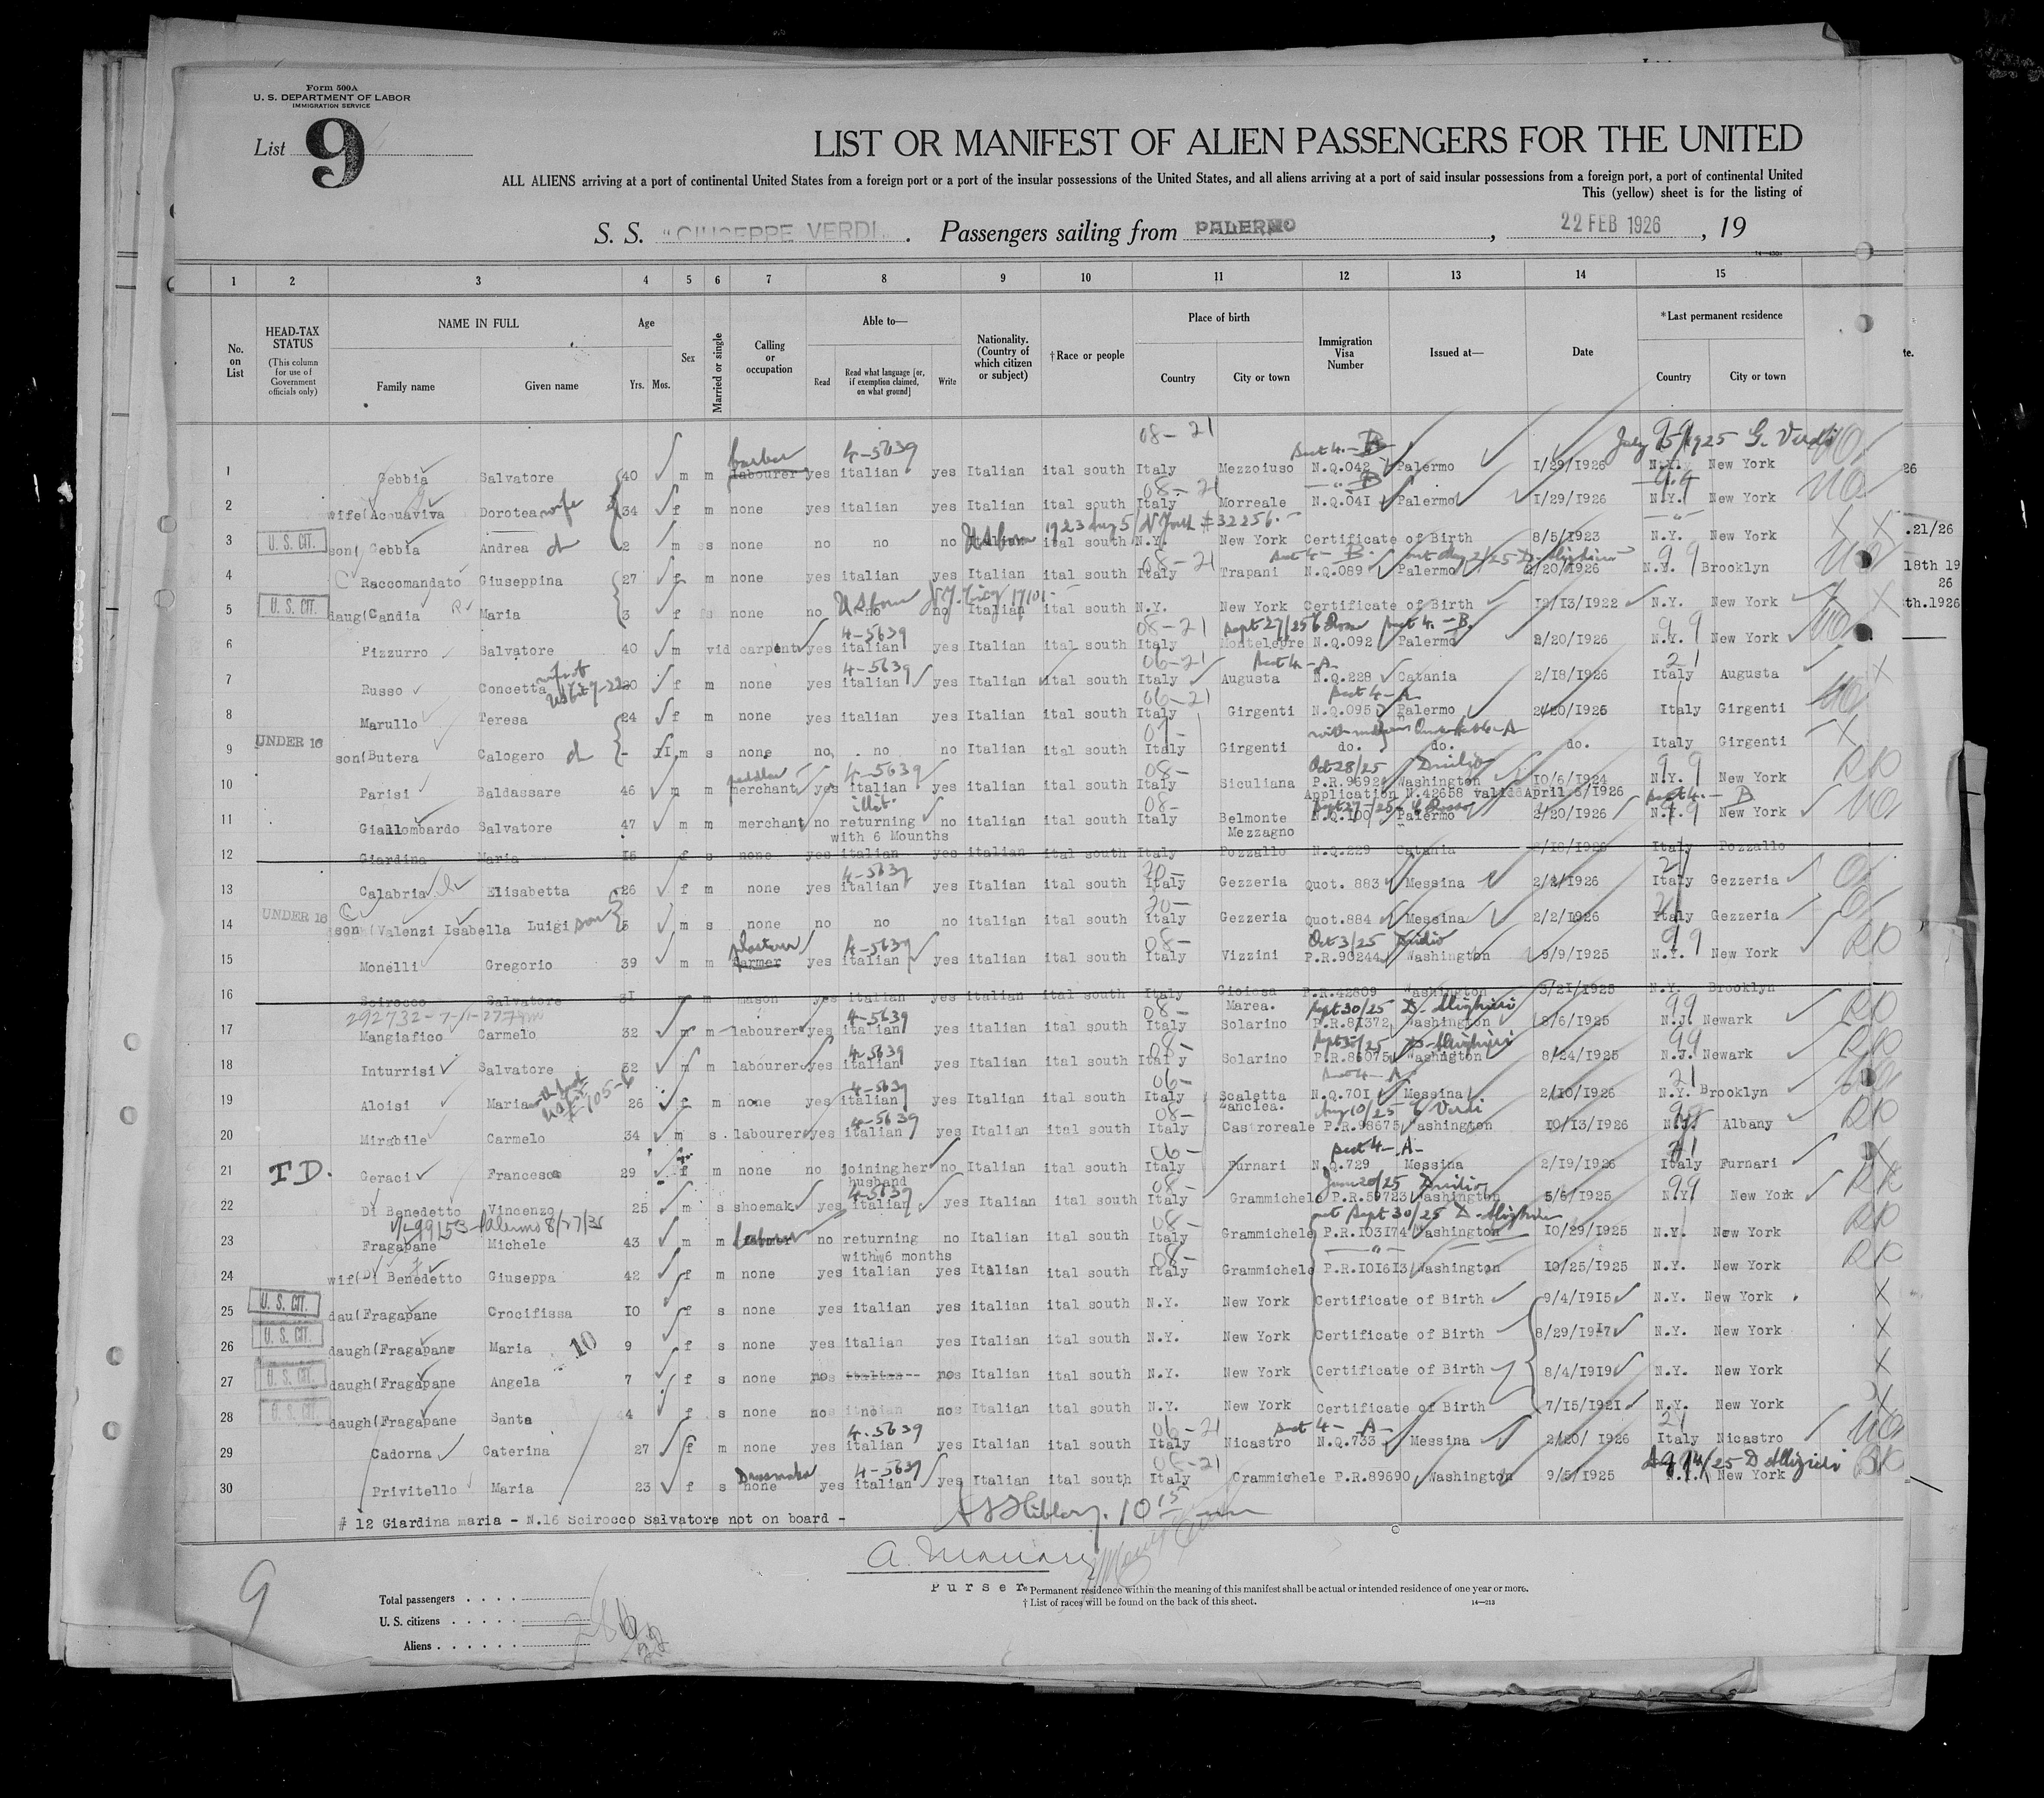 Form 500A
U. S. DEPARTMENT OF LABOR
IMMIGRATION SERVICE
List 9
LIST OR MANIFEST OF ALIEN PASSENGERS FOR THE UNITED
ALL ALIENS arriving at a port of continental United States from a foreign port or a port of the insular possessions of the United States, and all aliens arriving at a port of said insular possessions from a foreign port, a port of continental United
This (yellow) sheet is for the listing of
S. S. "GIUSEPPE VERDI". Passengers sailing from PALERMO, 22 FEB 1926, 19
1 2 3 4 5 6 7 8 9 10 11 12 13 14 15
No. on List
HEAD-TAX STATUS (This column for use of Government officials only)
NAME IN FULL Family name Given name
Age Yrs. Mos.
Sex
Married or single
Calling or occupation
Able to— Read Read what language [or, if exemption claimed, on what ground] Write
Nationality. (Country of which citizen or subject)
†Race or people
Place of birth Country City or town
Immigration Visa Number
Issued at—
Date
*Last permanent residence Country City or town
08-21 July 15/1925 G. Verdi
barber 4-5639 Sect 4.-B
1 Gebbia Salvatore 40 m m labourer yes italian yes Italian ital south Italy Mezzoiuso N.Q.042 Palermo 1/29/1926 N.Y. New York
08-21 99
2 wife(Acquaviva Dorotea wife 34 f m none yes italian yes Italian ital south Italy Morreale N.Q.041 Palermo 1/29/1926 N.Y. New York
US born 1923 Aug 5/ N York #32256.-
3 U. S. CIT. son( Gebbia Andrea 2 m s none no no no Italian ital south N.Y. New York Certificate of Birth 8/5/1923 N.Y. New York
08-21 Sect 4-B.
4 Raccomandato Giuseppina 27 f m none yes italian yes Italian ital south Italy Trapani N.Q.089 Palermo 2/20/1926 N.Y. Brooklyn
US born
5 U. S. CIT. daug(Candia Maria 3 f none no no no Italian ital south N.Y. New York Certificate of Birth 12/13/1922 N.Y. New York
4-5639 08-21 Sept 27/25 Sect 4.-B. 99
6 Pizzurro Salvatore 40 m vid carpent yes italian yes Italian ital south Italy Montelepre N.Q.092 Palermo 2/20/1926 N.Y. New York
4-5639 06-21 Sect 4-A 21
7 Russo Concetta 30 f m none yes italian yes Italian ital south Italy Augusta N.Q.228 Catania 2/18/1926 Italy Augusta
06-21 Sect 4-A
8 Marullo Teresa 24 f m none yes italian yes Italian ital south Italy Girgenti N.Q.095 Palermo 2/20/1926 Italy Girgenti
9 UNDER 16 son(Butera Calogero - 11 m s none no no no Italian ital south Italy Girgenti do. do. do. Italy Girgenti
peddler 4-5639 08- Oct 28/25 Duilio 99
10 Parisi Baldassare 46 m m merchant yes italian yes Italian ital south Italy Siculiana P.R.96924 Washington 10/6/1924 N.Y. New York
Application N.42658 valid April 6/1926
illit. 08- Sect 4.-B
11 Giallombardo Salvatore 47 m m merchant no returning no italian ital south Italy Belmonte N.Q.100 Palermo 2/20/1926 N.Y. New York
with 6 Mounths Mezzagno
12 Giardina Maria 15 f s none yes italian yes italian ital south Italy Pozzallo N.Q.229 Catania 2/18/1926 Italy Pozzallo
4-5639 20- 21
13 Calabria Elisabetta 26 f m none yes italian yes italian ital south Italy Gezzeria Quot. 883 Messina 2/2/1926 Italy Gezzeria
20-
14 UNDER 16 son (Valenzi Isabella Luigi son 5 m s none no no no italian ital south Italy Gezzeria Quot.884 Messina 2/2/1926 Italy Gezzeria
plasterer 4-5639 08- Oct 3/25 Duilio 99
15 Monelli Gregorio 39 m m farmer yes italian yes italian ital south Italy Vizzini P.R.90244 Washington 9/9/1925 N.Y. New York
16 Scirocco Salvatore 31 m m mason yes italian yes italian ital south Italy Gioiosa P.R.42809 Washington 3/21/1925 N.Y. Brooklyn
Marea.
4-5639 08- Sept 30/25 D. Alighieri 99
17 Mangiafico Carmelo 32 m m labourer yes italian yes Italian ital south Italy Solarino P.R.81372 Washington 8/6/1925 N.J. Newark
4-5639 08- Sept 30/25 D-Alighieri 99
18 Inturrisi Salvatore 32 m m labourer yes italian yes Italian ital south Italy Solarino P.R.86075 Washington 8/24/1925 N.J. Newark
4-5639 06- Sect 4-A 21
19 Aloisi Maria 26 f m none yes italian yes Italian ital south Italy Scaletta Zanclea. N.Q.701 Messina 2/10/1926 N.Y. Brooklyn
4-5639 08- Aug 10/25 G Verdi 99
20 Mirabile Carmelo 34 m s. labourer yes italian yes Italian ital south Italy Castroreale P.R.98675 Washington 10/13/1926 Albany
06- Sect 4-A- 21
21 T D. Geraci Francesca 29 f m none no joining her no Italian ital south Italy Furnari N.Q.729 Messina 2/19/1926 Italy Furnari
husband
4-5639 08- June 20/25 Duilio 99
22 Di Benedetto Vincenzo 25 m s shoemak yes italian yes Italian ital south Italy Grammichele P.R.59723 Washington 5/6/1925 N.Y. New York
08- Sept 30/25 D-Alighieri
23 Fragapane Michele 43 m m labourer no returning no Italian ital south Italy Grammichele P.R.103174 Washington 10/29/1925 N.Y. New York
with 6 months 08-
24 wif(Di Benedetto Giuseppa 42 f m none yes italian yes Italian ital south Italy Grammichele P.R.101613 Washington 10/25/1925 N.Y. New York
25 U. S. CIT. dau(Fragapane Crocifissa 10 f s none yes italian yes Italian ital south N.Y. New York Certificate of Birth 9/4/1915 N.Y. New York
26 U. S. CIT. daugh(Fragapane Maria 10 9 f s none yes italian yes Italian ital south N.Y. New York Certificate of Birth 8/29/1917 N.Y. New York
27 U. S. CIT. daugh(Fragapane Angela 7 f s none no italian no Italian ital south N.Y. New York Certificate of Birth 8/4/1919 N.Y. New York
28 U. S. CIT. daugh(Fragapane Santa 4 f s none no no no Italian ital south N.Y. New York Certificate of Birth 7/15/1921 N.Y. New York
4-5639 06-21 Sect 4-A- 21
29 Cadorna Caterina 27 f m none yes italian yes Italian ital south Italy Nicastro N.Q.733 Messina 2/20/1926 Italy Nicastro
Dressmaker 4-5639 06-21
30 Privitello Maria 23 f s none yes italian yes Italian ital south Italy Grammichele P.R.89690 Washington 9/5/1925 N.Y. New York
# 12 Giardina maria - N.16 Scirocco Salvatore not on board -
Purser
* Permanent residence within the meaning of this manifest shall be actual or intended residence of one year or more.
† List of races will be found on the back of this sheet.
14—213
9
Total passengers
U. S. citizens
Aliens